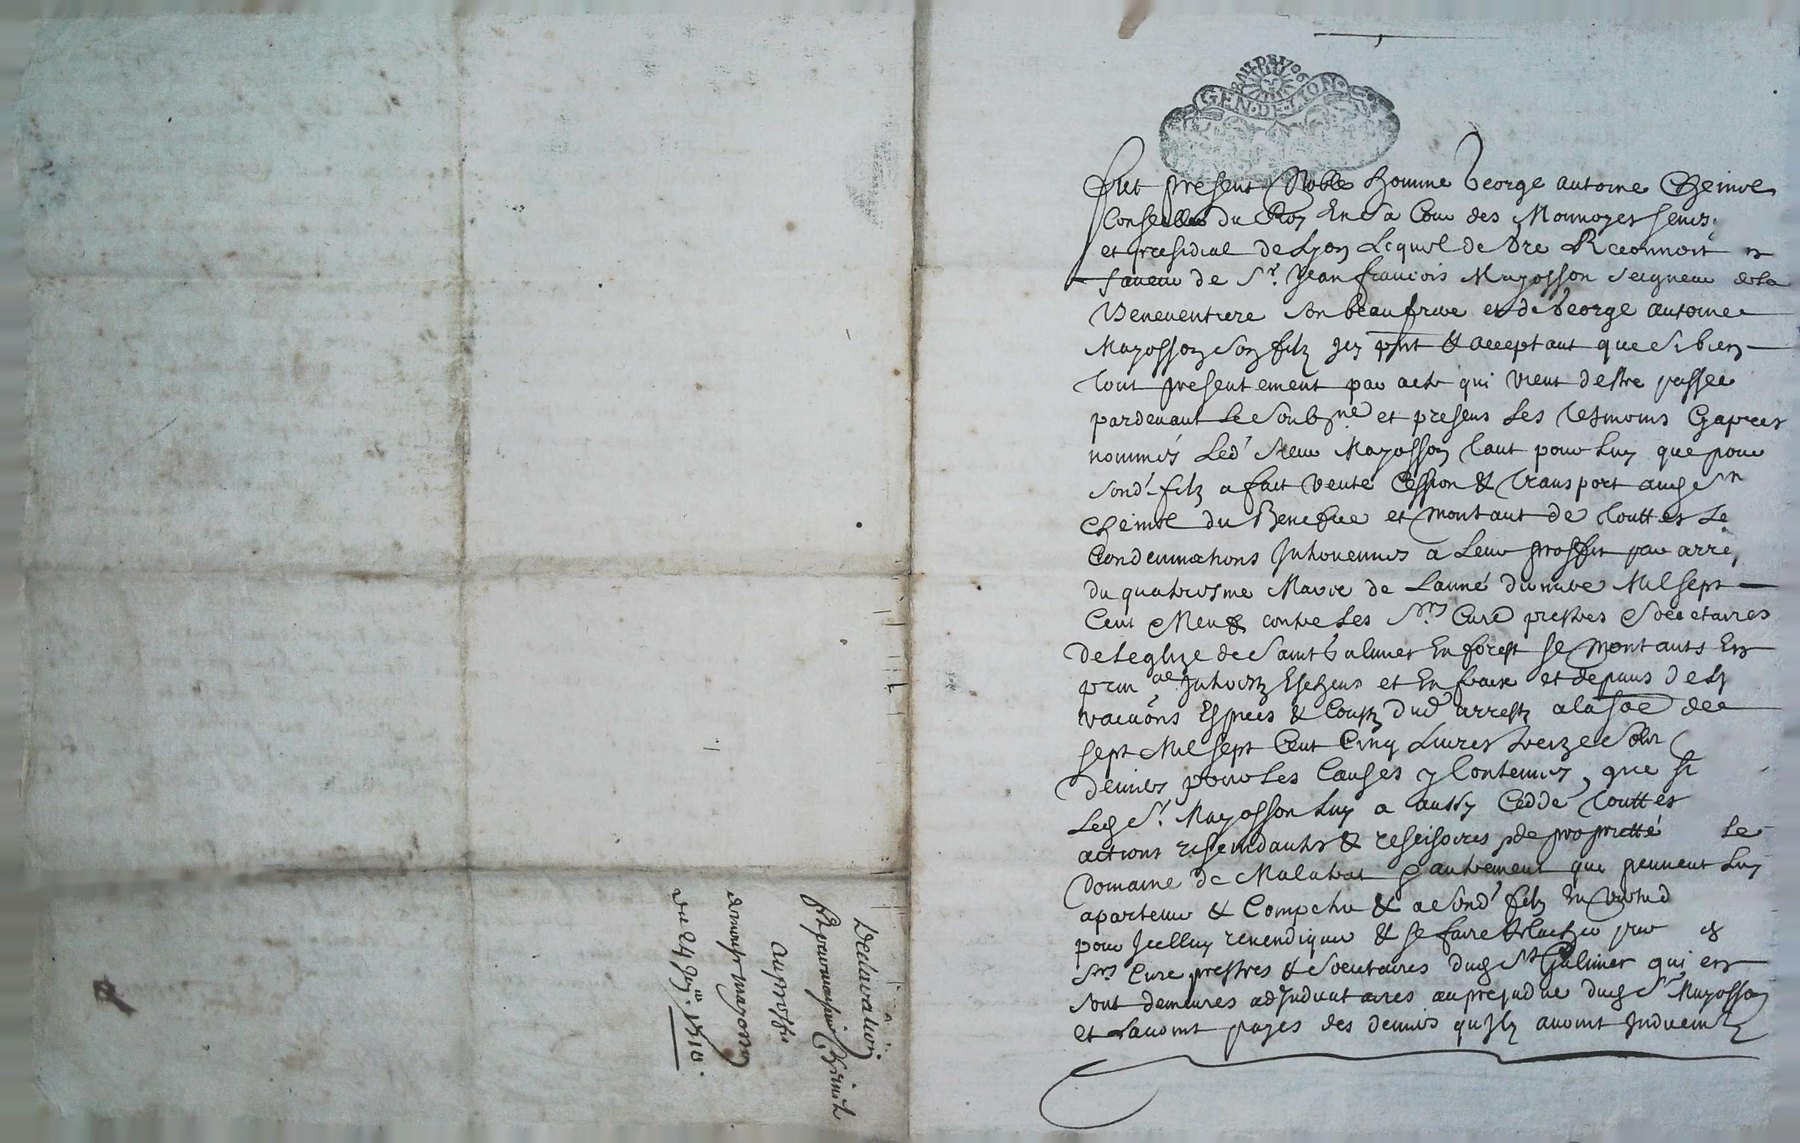 BAIL DE 1706
GEN·DE·LION
Fut present Noble homme George Antoine Cheinvel
Conseiller du Roy En sa Cour des Monnoyes senes.
et presidial de Lyon Lequel de gre Reconnoit en
faveur de Sr. Jean francois Mayosson seigneur de la
Beneventiere son beaufrere et de George antoine
Mayosson son filz icy pnt & acceptant que si bien
tout presentement par acte qui vient destre passée
pardevant Le Soubsne. et presens Les Tesmoins Cyapres
nommés Led' sieur Mayosson tant pour Luy que pour
sond' filz a fait vente Cession & transport aud Sr
du Benefice et montant de touttes Le
Condemnations a Leur proffit par arrê
du quatriesme Mars de Lanné derniere Mil sept
Cent Neuf contre Les Srs Curé prestres Societaires
de Leglize de Saint Galmier En forest se montants En
prin al Interestz Escheus et En fraix et depans des
vacaôns Espices & Coustz dud' arrestz a la soe de
sept Mil sept Cent Cinq Livres treize solz
deniers pour Les Causes y Contenues, que si
Led Sr. Mayosson Luy a aussy Ceddé touttes
actions rescindantes & rescisoires de proprietté Le
Domaine de Malatrat & autrement que peuvent Luy
apartenir & Competer & a sond' filz En vertud
pour Jcelluy revendiquer & se faire Relacher par
Srs Cure prestres & Societaires dud St Galmier qui en
sont demeures adjudicataires au prejudice dud Sr Mayosson
et Lavoint payes des deniers quJlz avoint
Declaration
aproffit
de monsr mayosson
du 24 Jen. 1710.